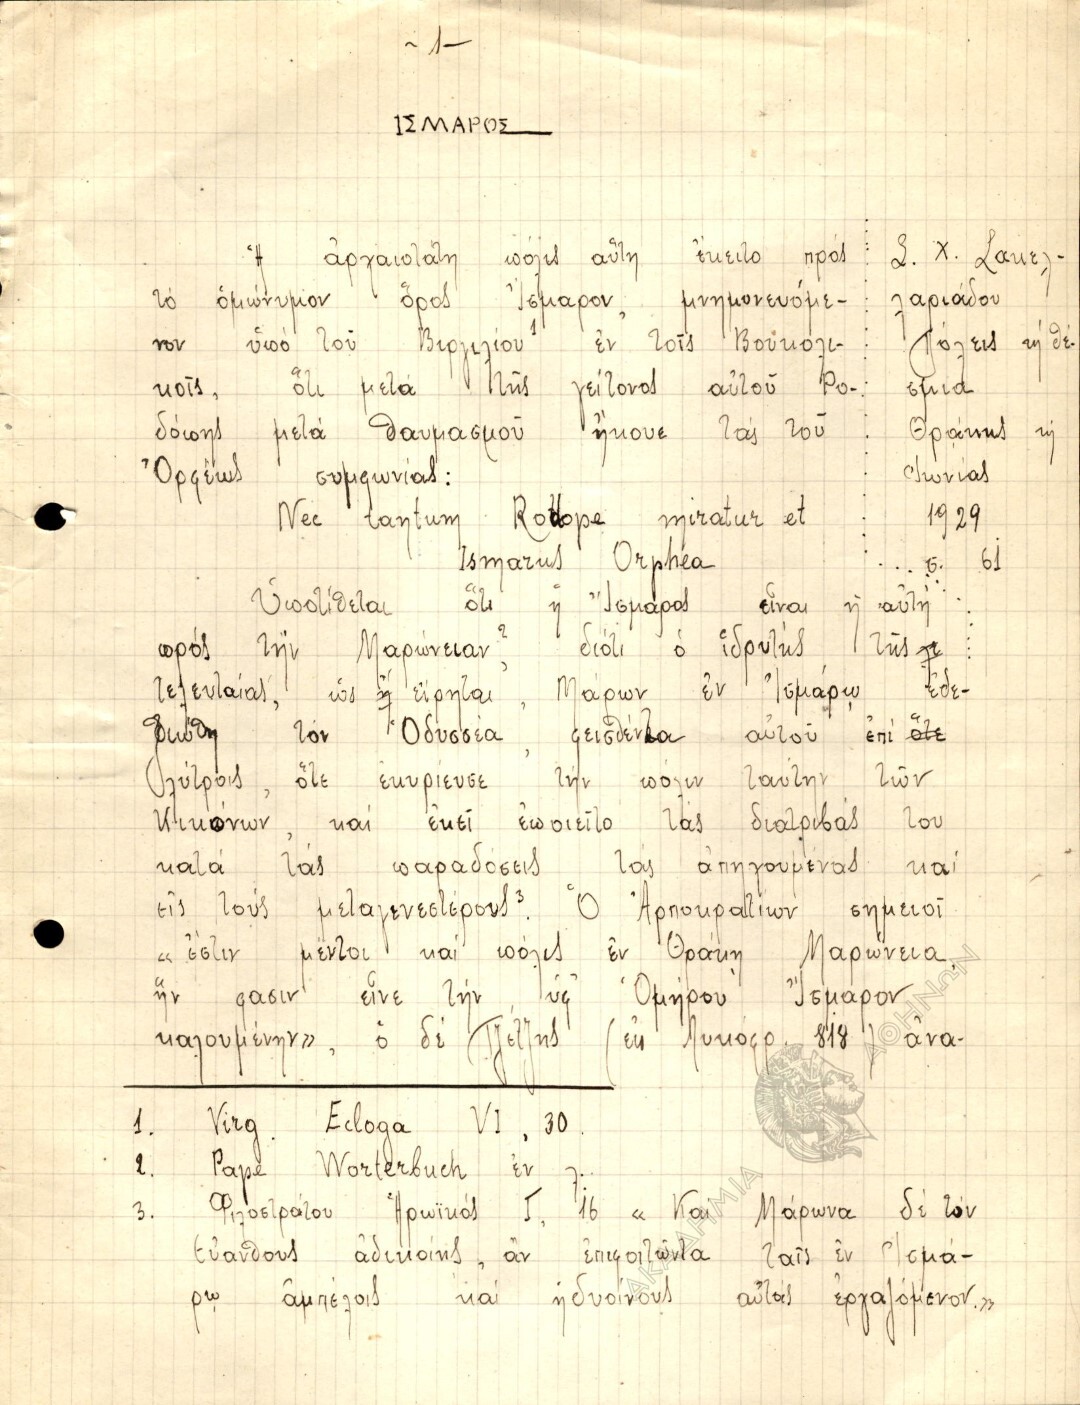 ~1~
ΙΣΜΑΡΟΣ
Ἡ ἀρχαιοτάτη πόλις αὕτη ἔκειτο πρός
τό ὁμώνυμον ὄρος Ἴσμαρον, μνημονευόμε-
νον ὑπό τοῦ Βιργιλίου¹ ἐν τοῖς Βουκολι-
κοῖς, ὅτι μετά τῆς γείτονος αὐτοῦ Ρο-
δόπης μετά θαυμασμοῦ ἤκουε τάς τοῦ
Ὀρφέως συμφωνίας:
Nec tantum Rodope miratur et
Ismarus Orphea
Ὑποτίθεται ὅτι ἡ Ἴσμαρος εἶναι ἡ αὐτή
πρός τήν Μαρώνειαν², διότι ὁ ἱδρυτής τῆς
τελευταίας, ὡς εἴρηται, Μάρων ἐν Ἰσμάρῳ ἐδε-
ξιώθη τόν Ὀδυσσέα, φεισθέντα αὐτοῦ ἐπί ὅτε
λύτροις, ὅτε ἐκυρίευσε τήν πόλιν ταύτην τῶν
Κικόνων, καί ἐκεῖ ἐποιεῖτο τάς διατριβάς του
κατά τάς παραδόσεις τάς ἀπηχουμένας καί
εἰς τούς μεταγενεστέρους³. Ὁ Ἁρποκρατίων σημειοῖ
« ἔστιν μέντοι καί πόλις ἐν Θράκῃ Μαρώνεια,
ἥν φασιν εἶνε τήν ὑφ' Ὁμήρου Ἴσμαρον
καλουμένην», ὁ δέ Τζέτζης (εἰς Λυκόφρ. 818) ἀνα-
Σ. Χ. Σακελ-
λαριάδου
Πόλεις κ' θέ-
σμια
Θράκης κ'
Ἰωνίας
1929
σ. 61
1. Virg. Ecloga VI, 30.
2. Pape Worterbuch ἐν λ.
3. Φιλοστράτου Ἡρωϊκός Γ, 16 « Καί Μάρωνα δέ τόν
Εὐάνθους ἀδικοίης, ἄν ἐπιφοιτῶντα ταῖς ἐν Ἰσμά-
ρῳ ἀμπέλοις καί ἡδυοίνους αὐτάς ἐργαζόμενον.»
ΑΚΑΔΗΜΙΑ ΑΘΗΝΩΝ